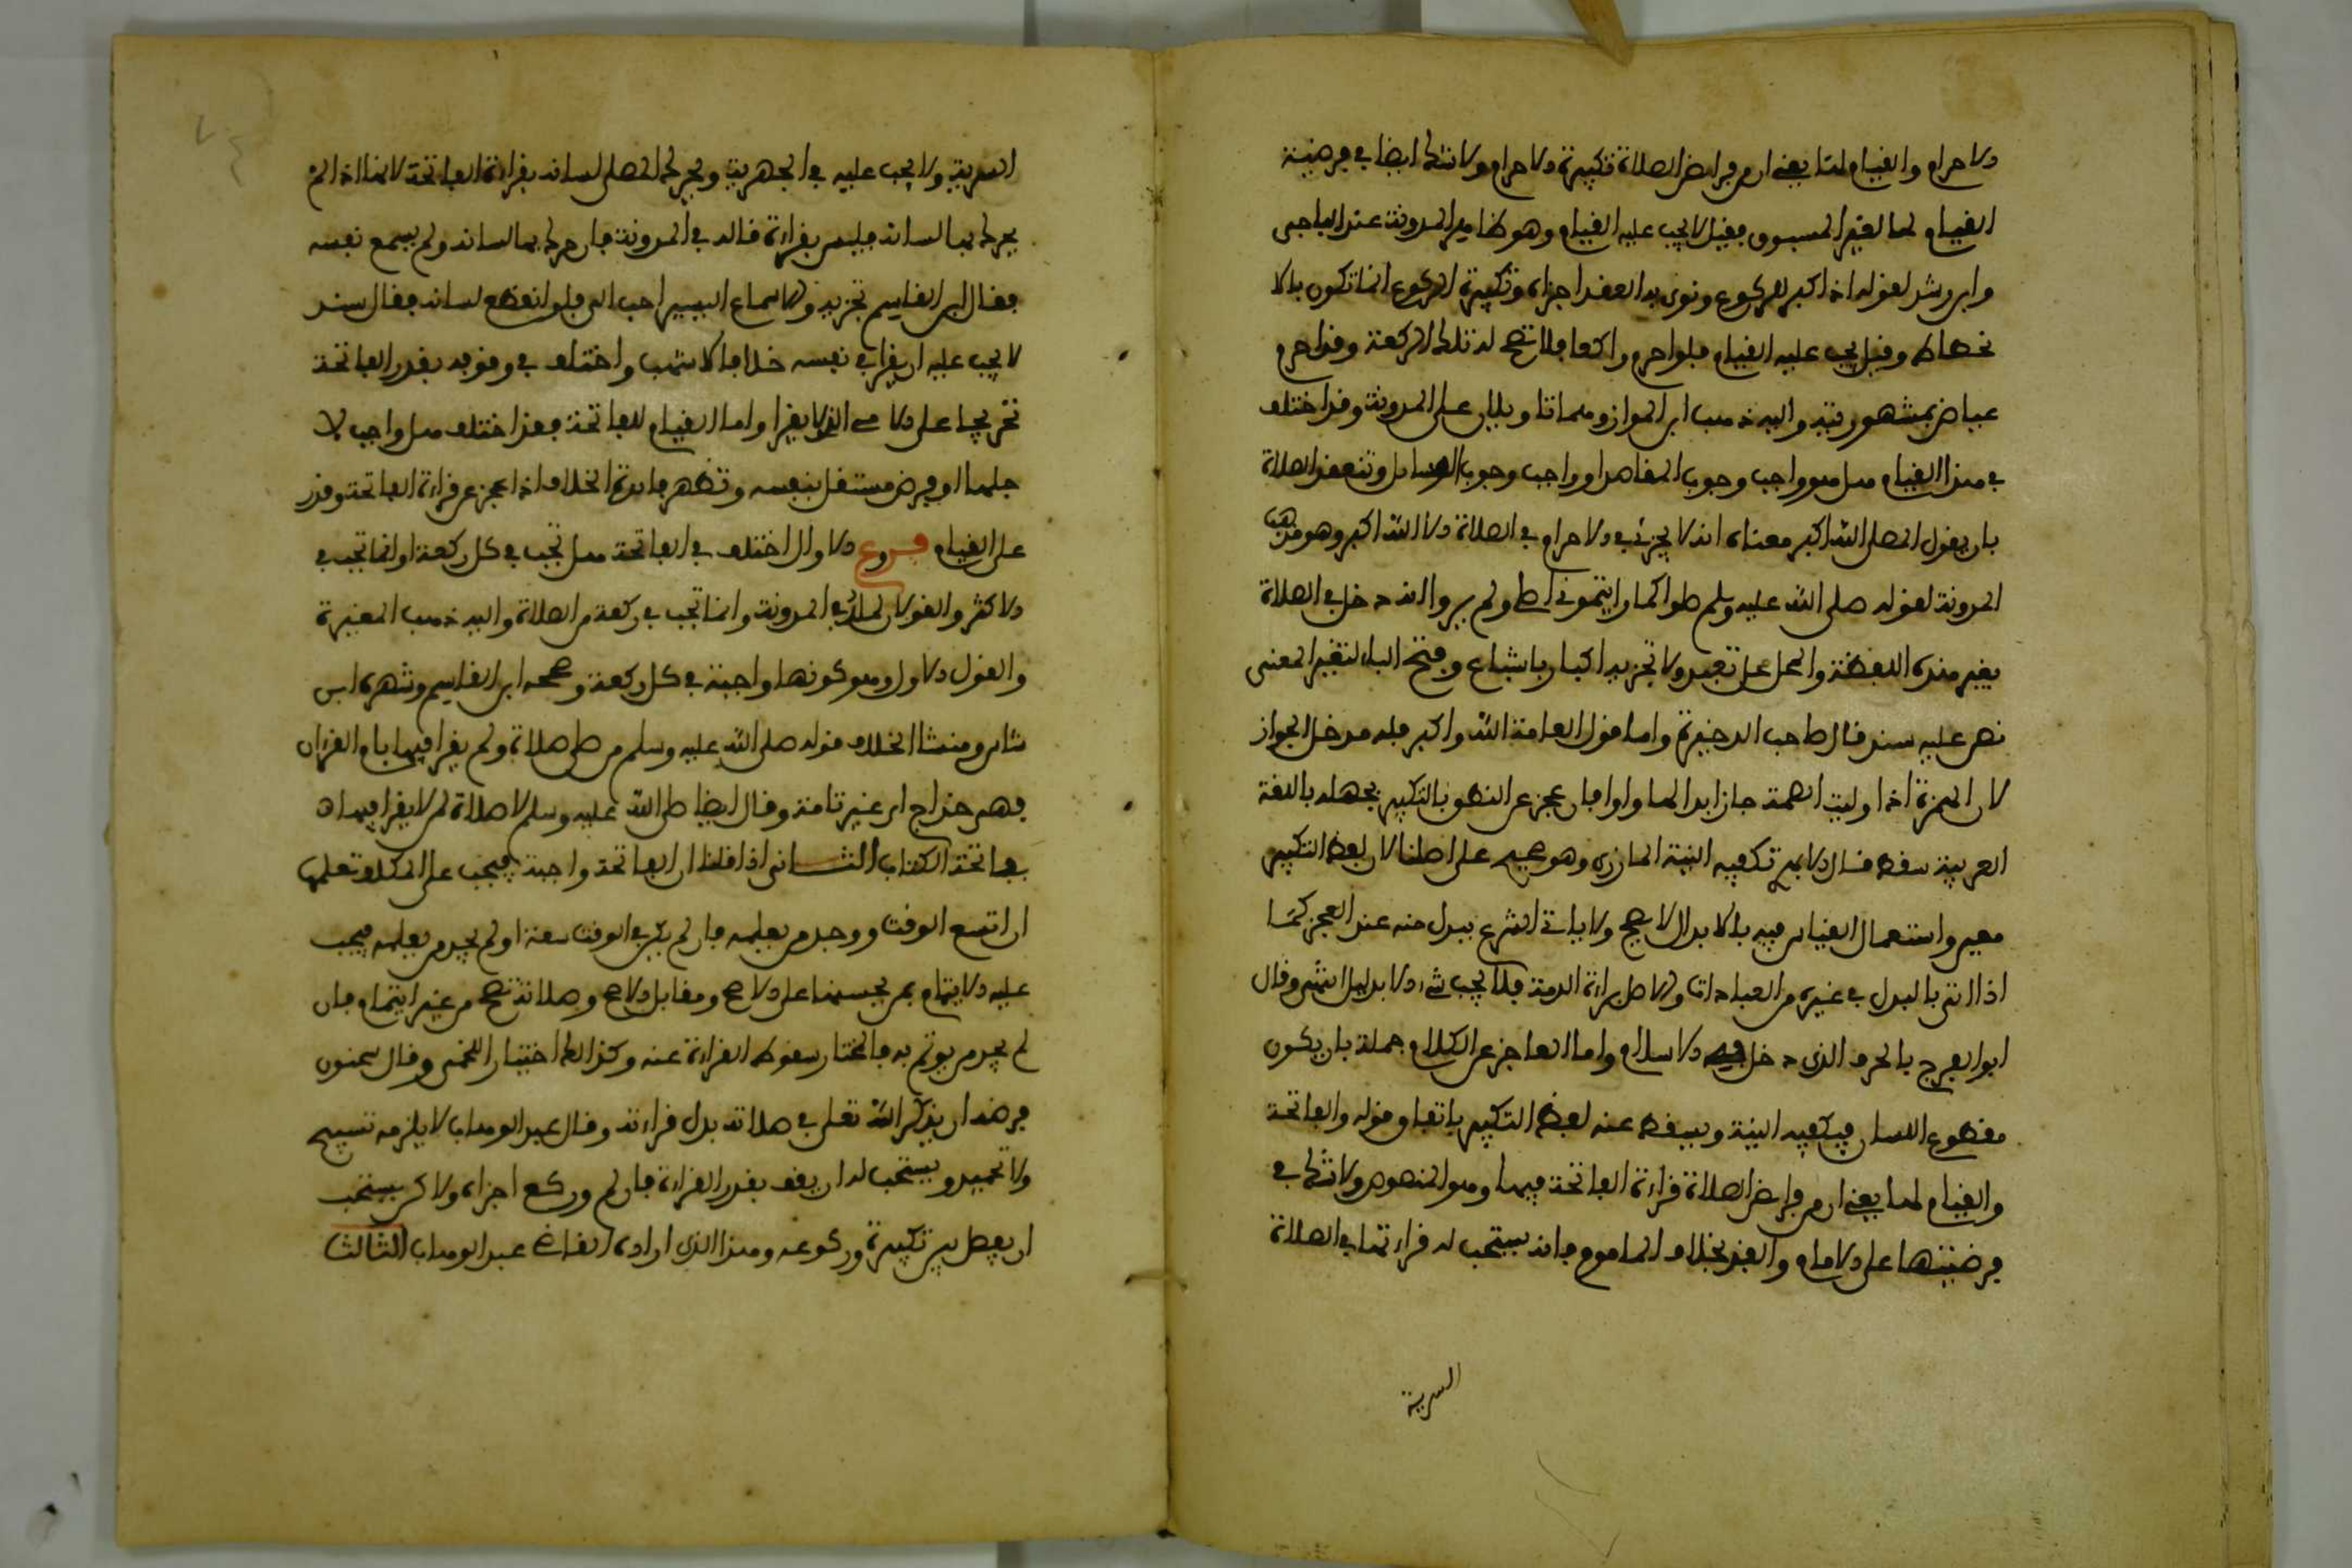 الاحرام والقيام لها يعني ان من فرايض الصلاة تكبيرة الاحرام ولا شك ايضا في فرضية
القيام لها لغير المسبوق فقيل لا يجب عليه القيام وهو ظاهر المدونة عند الباجي
وابن رشد لقوله اذا كبر للركوع ونوى به العقد اجزاه وتكبيرة الركوع انما تكون بالا
نحطاط وقيل يجب عليه القيام فلو احرم راكعا فلا تصح له تلك الركعة وقد احرم
عياض بمشهوريته واليه ذهب ابن المواز وهما تاويلان على المدونة وقد اختلف
في هذا القيام هل هو واجب وجوب المقاصد او واجب وجوب الوسايل وتنعقد الصلاة
بان يقول المصلي الله اكبر معناه انه لا يجزئ في الاحرام في الصلاة الا الله اكبر وهو مذهب
المدونة لقوله صلى الله عليه وسلم صلوا كما رايتموني اصلي ولم يرووا انه دخل في الصلاة
بغير هذه اللفظة والمحل محل تعبد ولا تجزيه اكبار باشباع وفتح الباء لتغير المعنى
نص عليه سند قال صاحب الذخيرة واما قول العامة الله واكبر فله مدخل الجواز
لان الهمزة اذا وليت الضمة جاز ابدالها واوا فان عجز عن النطق بالتكبير لجهله باللغة
العربية سقط قال الابهري تكفيه النية المازري وهو صحيح على اصلنا لان لفظ التكبير
معين واستعمال القياس فيه بالابدال لا يصح ولا ياتي الشرع ببدل منه عند العجز كما
اذا اتى بالبدل في غيره من العبادات والاصل براءة الذمة فلا يجب شيء الا بدليل شرعي وقال
ابو الفرج بالحرف الذي دخل به الاسلام واما العاجز عن الكلام جملة بان يكون
مقطوع اللسان فيكفيه النية ويسقط عنه لفظ التكبير باتفاق قوله والفاتحة
والقيام لها يعني ان من فرايض الصلاة قراءة الفاتحة فيها وهو المنصوص ولا شك في
فرضيتها على الامام والفذ بخلاف الماموم فانه يستحب له قراءتها في الصلاة
السرية
السرية ولا يجب عليه في الجهرية ويحرك المصلي لسانه بقراءة الفاتحة لانها اذا لم
يحرك بها لسانه فليس بقراءة قاله في المدونة فان حرك بها لسانه ولم يسمع نفسه
فقال ابن القاسم تجزيه والاسماع اليسير احب الي فلو انقطع لسانه فقال سند
لا يجب عليه ان يقرا في نفسه خلافا لاشهب واختلف في وقوفه بقدر الفاتحة
تخريجا على الامي الذي لا يقرا واما القيام للفاتحة فقد اختلف هل واجب لا
جلها او فرض مستقل بنفسه وتظهر فايدة الخلاف اذا عجز عن قراءة الفاتحة وقدر
على القيام فروع الاول اختلف في الفاتحة هل تجب في كل ركعة او انما تجب في
الاكثر والقولان لمالك في المدونة وانما تجب في ركعة من الصلاة واليه ذهب المغيرة
والقول الاول وهو كونها واجبة في كل ركعة وصححه ابن القاسم وشهره ابن
شاس ومنشا الخلاف قوله صلى الله عليه وسلم من صلى صلاة ولم يقرا فيها بام القران
فهي خداج اي غير تامة وقال ايضا صلى الله عليه وسلم لا صلاة لمن لا يقرا فيها
بفاتحة الكتاب الثاني اذا قلنا ان الفاتحة واجبة فيجب على المكلف تعلمها
ان اتسع الوقت ووجد من يعلمه فان لم يكن في الوقت سعة او لم يجد من يعلمه فيجب
عليه الايتمام بمن يحسنها على الاصح ومقابل الاصح وصلاته تصح من غير ايتمام فان
لم يجد من يوتم به فالمختار سقوط القراءة عنه وكذلك اختيار اللخمي وقال سحنون
فرضه ان يذكر الله تعلى في صلاته بدل قراءته وقال عبد الوهاب لا يلزمه تسبيح
ولا تحميد ويستحب له ان يقف بقدر القراءة فان لم وركع اجزاه ولاكن يستحب
ان يفصل بين تكبيرة وركوعه وهذا الذي اراده القاضي عبد الوهاب الثالث